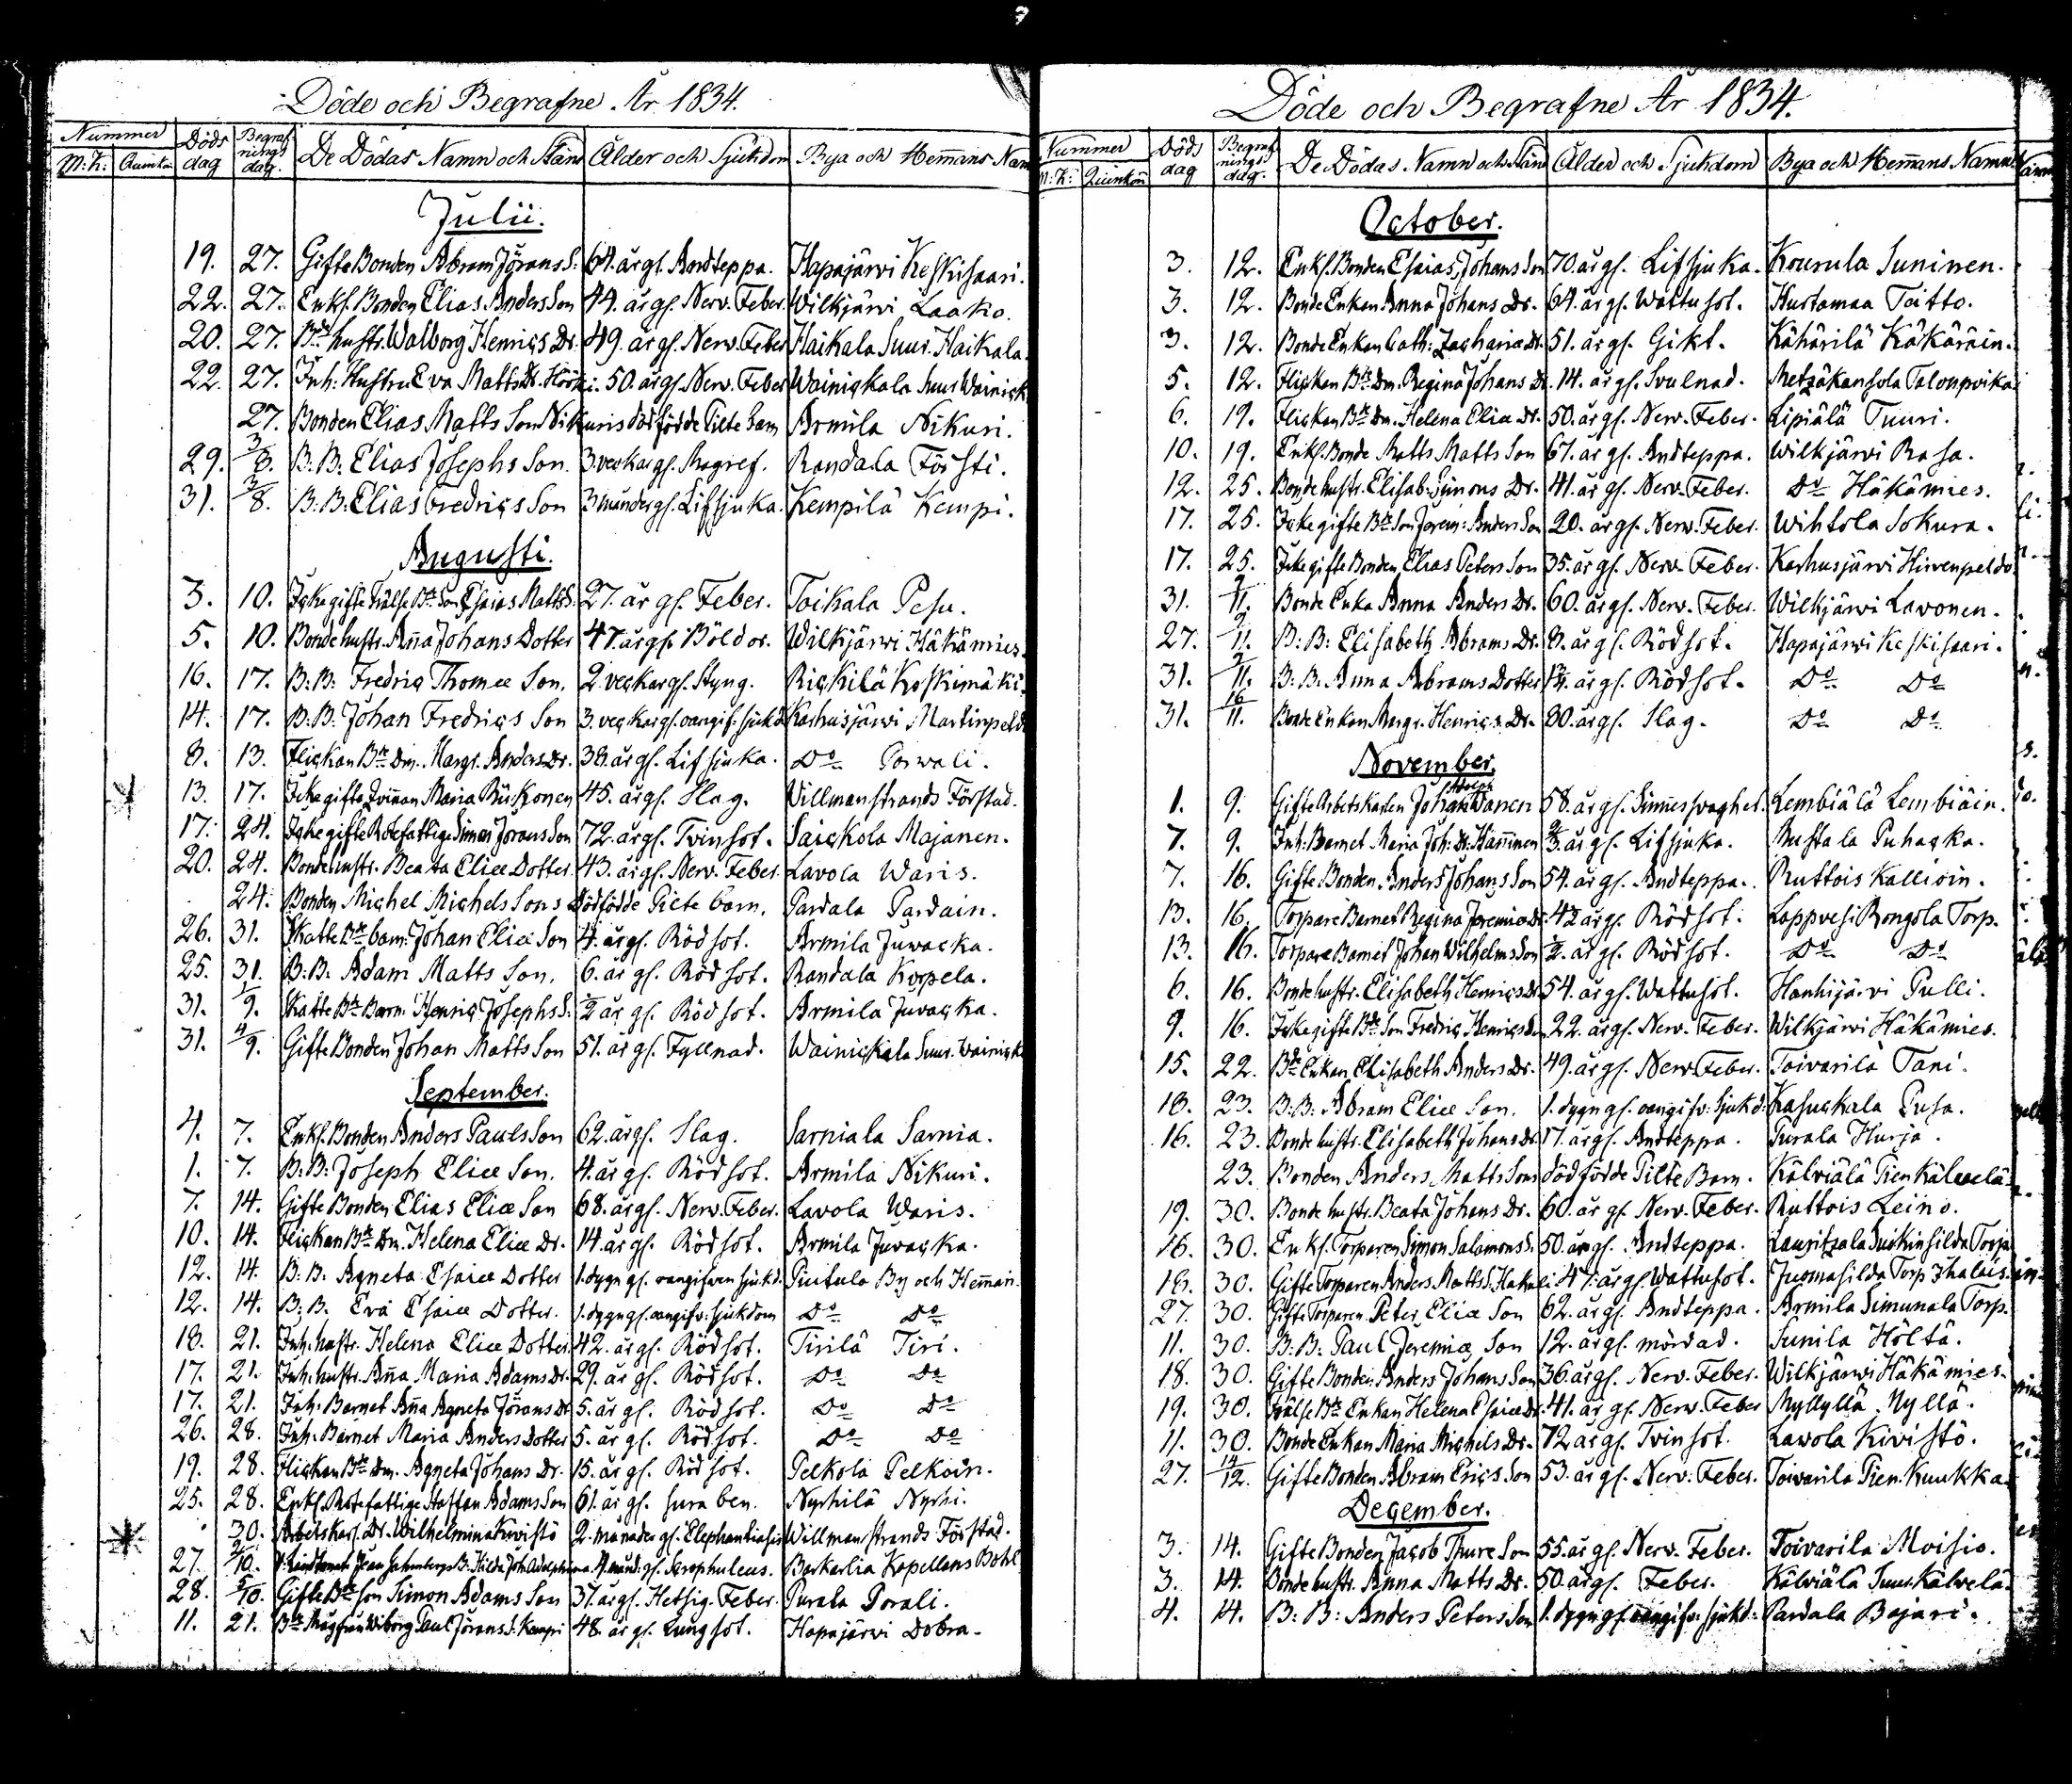 Döde och Begrafne År 1834.
Nummer Döds dag Begrafnings dag. De Dödas Namn och Stånd Ålder och Sjukdom Bya och Hemans Namn
M:K: Quinkön
Julii.
19. 27. Gifte Bonden Abram Jörans S: 64. år gl. Andteppa. Hapajärvi Keskisaari.
22. 27. Enkl. Bonden Elias Anders Son 44. år gl. Nerv. Feber. Wilkjärvi Laako.
20. 27. Bde hustr. Walborg Henrics Dr. 49. år gl. Nerv. Feber Haikala Suur Haikala.
22. 27. Inh. Hustru Eva Matts Dr. 50. år gl. Nerv. Feber Wainickala Suur Wainick
27. Bonden Elias Matts Son Nikuris dödfödde Pilte barn Armila Nikuri.
29. 3/8. B. B. Elias Josephs Son. 3. veckar gl. Magref. Randala Försti.
31. 3/8. B. B. Elias Fredrics Son 3 månader gl. Lifsjuka. Kempilä Kempi.
Augusti.
3. 10. Icke gifte Frälse Bde Son Esaias Matts S. 27. år gl. Feber. Toikala Pesu.
5. 10. Bonde hustr. Aña Johans Dotter 47. år gl. Böldor. Wilkjärvi Häkämies.
16. 17. B: B: Fredric Thomæ Son. 2. veckar gl. Styng. Rickilä Koskimäki.
14. 17. B. B. Johan Fredrics Son 3. veckar gl. oangif: sjukd Karhusjärvi Martinpeldo
8. 13. Flickan Bde Dm. Margr. Anders Dr. 38. år gl. Lifsjuka. Do Porvali.
13. 17. Icke gifte Qvinnan Maria Ruskonen 45. år gl. Slag. Willmanstrands Förstad.
17. 24. Icke gifte Rotefattige Simon Jörans Son 72. år gl. Tvinsot. Saickola Majanen.
20. 24. Bonde hustr. Beata Eliæ Dotter 43. år gl. Nerv. Feber. Lavola Waris.
24. Bonden Michel Michels Sons Dödfödde Pilte barn. Pardala Pardain.
26. 31. Skatte Bde barn: Johan Eliæ Son 4. år gl. Rödsot. Armila Juvacka.
25. 31. B: B. Adam Matts Son. 6. år gl. Rödsot. Randala Korpela.
31. 1/9. Skatte Bde Barn: Henric Josephs S. 1/2 år gl. Rödsot. Armila Juvacka.
31. 4/9. Gifte Bonden Johan Matts Son 51. år gl. Fyllnad. Wainickala Suur Wainick
September.
4. 7. Enkl. Bonden Anders Pauls Son 62. år gl. Slag. Sarniala Sarnia.
1. 7. B: B: Joseph Eliæ Son. 4. år gl. Rödsot. Armila Nikuri.
7. 14. Gifte Bonden Elias Eliæ Son 68. år gl. Nerv. Feber. Lavola Waris.
10. 14. Flickan Bde Dm. Helena Eliæ Dr. 14. år gl. Rödsot. Armila Juvacka.
12. 14. B. B. Agneta Esaiæ Dotter 1. dygn gl. oangifven sjukd. Piutula By och Heman.
12. 14. B. B. Eva Esaiæ Dotter. 1. dygn gl. oangifv: sjukdom Do Do
18. 21. Inh. hustr. Helena Eliæ Dotter 42. år gl. Rödsot. Tirilä Tiri.
17. 21. Inh. hustr. Aña Maria Adams Dr. 29. år gl. Rödsot. Do Do
17. 21. Inh. Barnet Aña Agneta Jörans Dr 5. år gl. Rödsot. Do Do
26. 28. Inh. Barnet Maria Anders Dotter 5. år gl. Rödsot. Do Do
19. 28. Flickan Bde Dm. Agneta Johans Dr. 15. år gl. Rödsot. Pelkola Pelkoin.
25. 28. Enkl. Rotefattige Staffan Adams Son 61. år gl. sura ben. Nyrhilä Nyrhi.
30. Arbetskarl. Dr. Wilhelmina Kivistö 2. månader gl. Elephantiasis Willmanstrands Förstad.
27. 10. 4. månd. gl. Scrophuleus. Barkarila Kapellans Bohl
28. 5/10. Gifte Bde son Simon Adams Son 37. år gl. Hetsig. Feber. Purala Porali.
11. 21. Bde Paul Jörans S. Kaupi 48. år gl. Lungsot. Hapajärvi Dobra.
Döde och Begrafne År 1834.
Nummer Döds dag Begrafnings dag. De Dödas Namn och Stånd Ålder och Sjukdom Bya och Hemans Namn
M: K: Quinkön
October.
3. 12. Enkl. Bonden Esaias Johans Son 70 år gl. Lifsjuka. Kourula Suninen.
3. 12. Bonde Enkan Anna Johans Dr. 64. år gl. Wattusot. Hurtamaa Taitto.
3. 12. Bonde Enkan Cath: Zachariæ Dr. 51. år gl. Gikt. Kähärilä Käkäräin.
5. 12. Flickan Bde Dm. Regina Johans Dr. 14. år gl. Svulnad. Metzäkansola Talonpoika
6. 19. Flickan Bde Dm. Helena Eliæ Dr. 50. år gl. Nerv. Feber. Lipiälä Tuuri.
10. 19. Enkl. Bonde Matts Matts Son 67. år gl. Andteppa. Wilkjärvi Rasa.
12. 25. Bonde hustr. Elisab: Simons Dr. 41. år gl. Nerv. Feber. Do Häkämies.
17. 25. Icke gifte Bde Son Jerem: Anders Son 20. år gl. Nerv. Feber. Wihtola Sokura.
17. 25. Icke gifte Bonden Elias Peters Son 35. år gl. Nerv. Feber. Karhusjärvi Hirvenpeldo
31. 2/11. Bonde Enka Anna Anders Dr. 60. år gl. Nerv. Feber. Wilkjärvi Lavonen.
27. 2/11. B: B: Elisabeth Abrams Dr. 8. år gl. Rödsot. Hapajärvi Keskisaari.
31. 2/11. B. B. Anna Abrams Dotter år gl. Rödsot. Do Do
31. 16/11. Bonde Enkan Margr. Henrics Dr. 80. år gl. Slag. Do Do
November.
1. 9. Gifte Arbets Karlen Johan Adolph Danen 58. år gl. Sinnessvaghet. Lembiälä Lembiäin.
7. 9. Inh: Barnet Maria Joh: Dr. Häninen år gl. Lifsjuka. Mustala Puhacka.
7. 16. Gifte Bonden Anders Johans Son 54. år gl. Andteppa. Ruttois Kallioin.
13. 16. Torpare Barnet Regina Jeremiæ Dr. år gl. Rödsot. Lappvesi Rongola Torp.
13. 16. Torpare Barnet Johan Wilhelms Son 1/2. år gl. Rödsot. Do Do
6. 16. Bonde hustr. Elisabeth Henrics Dr 54. år gl. Wattusot. Hanhijärvi Pulli.
9. 16. Icke gifte Bde Son Fredric Henrics Son 22. år gl. Nerv. Feber. Wilkjärvi Häkämies.
15. 22. Bde Enkan Elisabeth Anders Dr. 49. år gl. Nerv Feber. Toivarila Tani.
18. 23. B: B: Abram Eliæ Son. 1. dygn gl. oangifv: sjukd: Kasuckala Pusa.
16. 23. Bonde hustr. Elisabeth Johans Dr. 17. år gl. Andteppa. Purala Hurja.
23. Bonden Anders Matts Sons dödfödde Pilte Barn. Kälviälä Pien Kälvelä
19. 30. Bonde hustr. Beata Johans Dr. 60. år gl. Nerv. Feber. Ruttois Leino.
16. 30. Enkl. Torparen Simon Salamons S. 50. år gl. Andteppa. Lauritzala Torp
18. 30. Gifte Torparen Anders Matts S. Hakuli 47. år gl. Wattusot. Juomasilda Torp Ihalais.
27. 30. Gifte Torparen Peter Eliæ Son 62. år gl. Andteppa. Armila Simunala Torp.
11. 30. B: B: Paul Jeremiæ Son 12. år gl. mördad. Sunila Höltä.
18. 30. Gifte Bonden Anders Johans Son 36. år gl. Nerv. Feber. Wilkjärvi Häkämies.
19. 30. Frälse Bde Enkan Helena Esaiæ Dr. 41. år gl. Nerv. Feber Myllyllä Myllä.
11. 30. Bonde Enkan Maria Michels Dr. 72 år gl. Tvinsot. Lavola Kivistö.
27. 14/12. Gifte Bonden Abram Erics Son 53. år gl. Nerv. Feber. Toivarila Pien Kuukka
December.
3. 14. Gifte Bonden Jacob Thure Son 55. år gl. Nerv. Feber. Toivarila Moisio.
3. 14. Bonde hustr. Anna Matts Dr. 50. år gl. Feber. Kälviälä Suur Kälvelä.
4. 14. B: B: Anders Peters Son 1. dygn gl. oangifv: sjukd: Pardala Bajari.